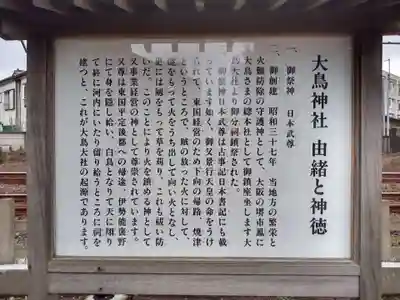 大鳥神社 由緒と神徳
一、御祭神 日本武尊
一、御創建 昭和三十七年 当地方の繁栄と
火難防除の守護神として、大阪の堺市鳳に
大鳥さまの総本社として御鎮座坐します大
鳥大社より御分祠鎮祭された。
御祭神日本武尊は古事記日本書記にも載
っています如く、御父景行天皇の命をうけ
られて、東国経営のため下向の帰路、焼津
というところで、賊の放った火に対して、
燧をもって火をうち出して向い火となし、
更には剣をもって草を苅り、これも祓い防
いだ。このことにより火を鎮める神として
又事業経営の神として尊崇されています。
又尊は東国平定後都への帰途、伊勢能褒野
にて身を隠し給い、白鳥となりて天に翔り
て終に河内にいたり留り給うところに祠を
建つと、これが大鳥大社の起源であります。